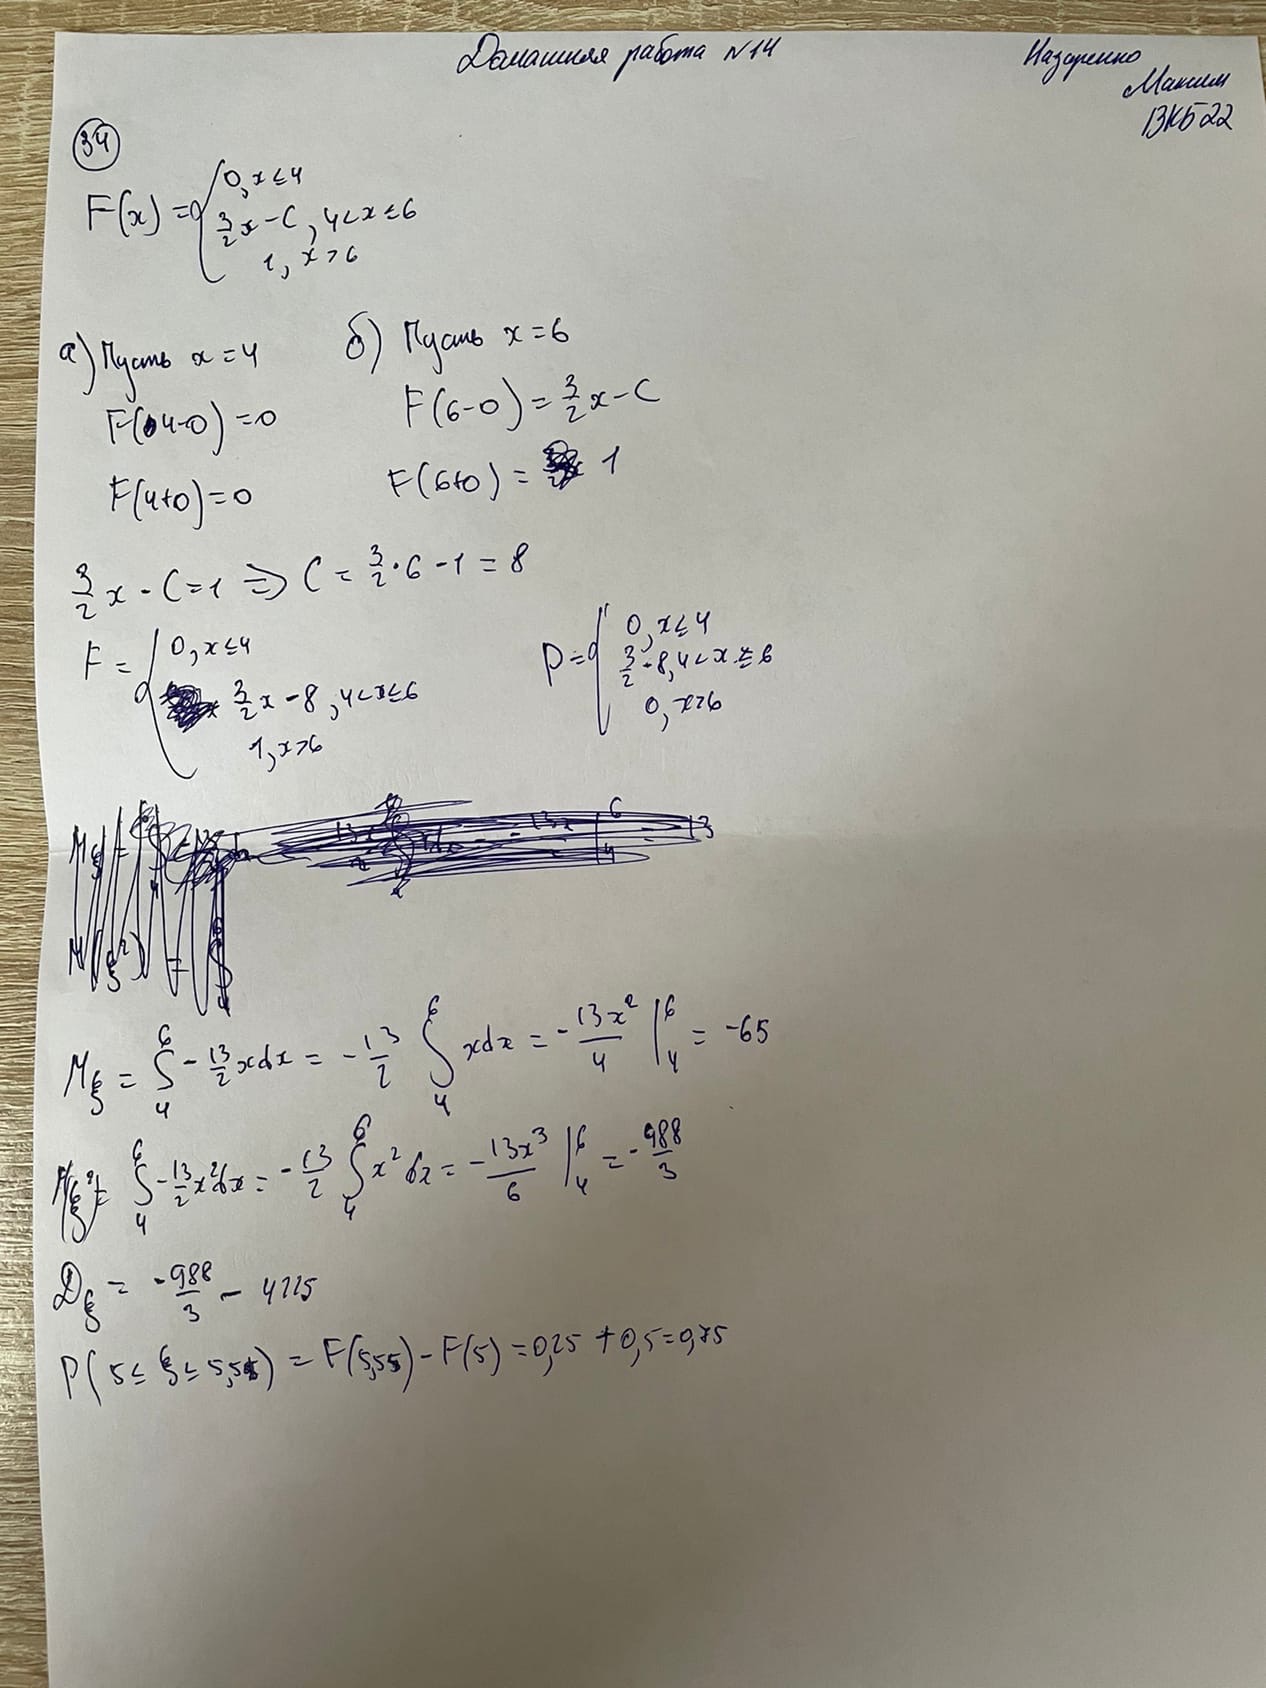 Домашняя работа N14
Назаренко
Максим
ВКБ22
34
F(x) = { 0, x ≤ 4
3/2 x - C, 4 < x ≤ 6
1, x > 6
а) Пусть x = 4
F(4-0) = 0
F(4+0) = 0
б) Пусть x = 6
F(6-0) = 3/2 x - C
F(6+0) = 1
3/2 x - C = 1 => C = 3/2 · 6 - 1 = 8
F = { 0, x ≤ 4
3/2 x - 8, 4 < x ≤ 6
1, x > 6
P = { 0, x ≤ 4
3/2 - 8, 4 < x ≤ 6
0, x > 6
Mξ = ∫₄⁶ - 13/2 x dx = - 13/2 ∫₄⁶ x dx = - 13x²/4 |₄⁶ = -65
M(ξ²) = ∫₄⁶ - 13/2 x² dx = - 13/2 ∫₄⁶ x² dx = - 13x³/6 |₄⁶ = - 988/3
Dξ = - 988/3 - 4225
P(5 ≤ ξ ≤ 5,5) = F(5,5) - F(5) = 0,25 + 0,5 = 0,75